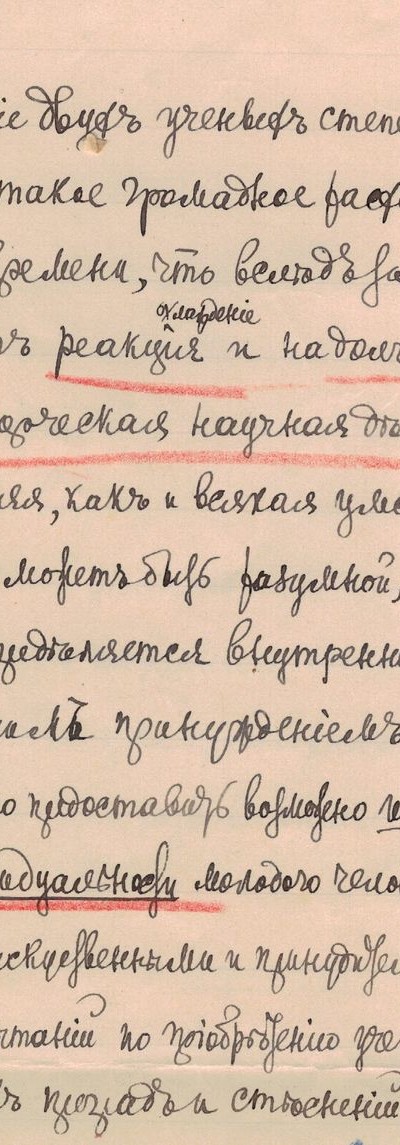 іе двухъ ученыхъ степе
такое громадное расх
ремени, что вслѣдъ за
охлажденіе
ъ реакція и надолг
орческая научная дѣ
ая, какъ и всякая умс
можетъ быть разумной,
редѣляется внутренн
имъ принужденіемъ
о предоставить возможно
идуальности молодого чело
искусственными и принудител
ытаній по пріобрѣтенію уче
ъ преградъ и стѣсненій